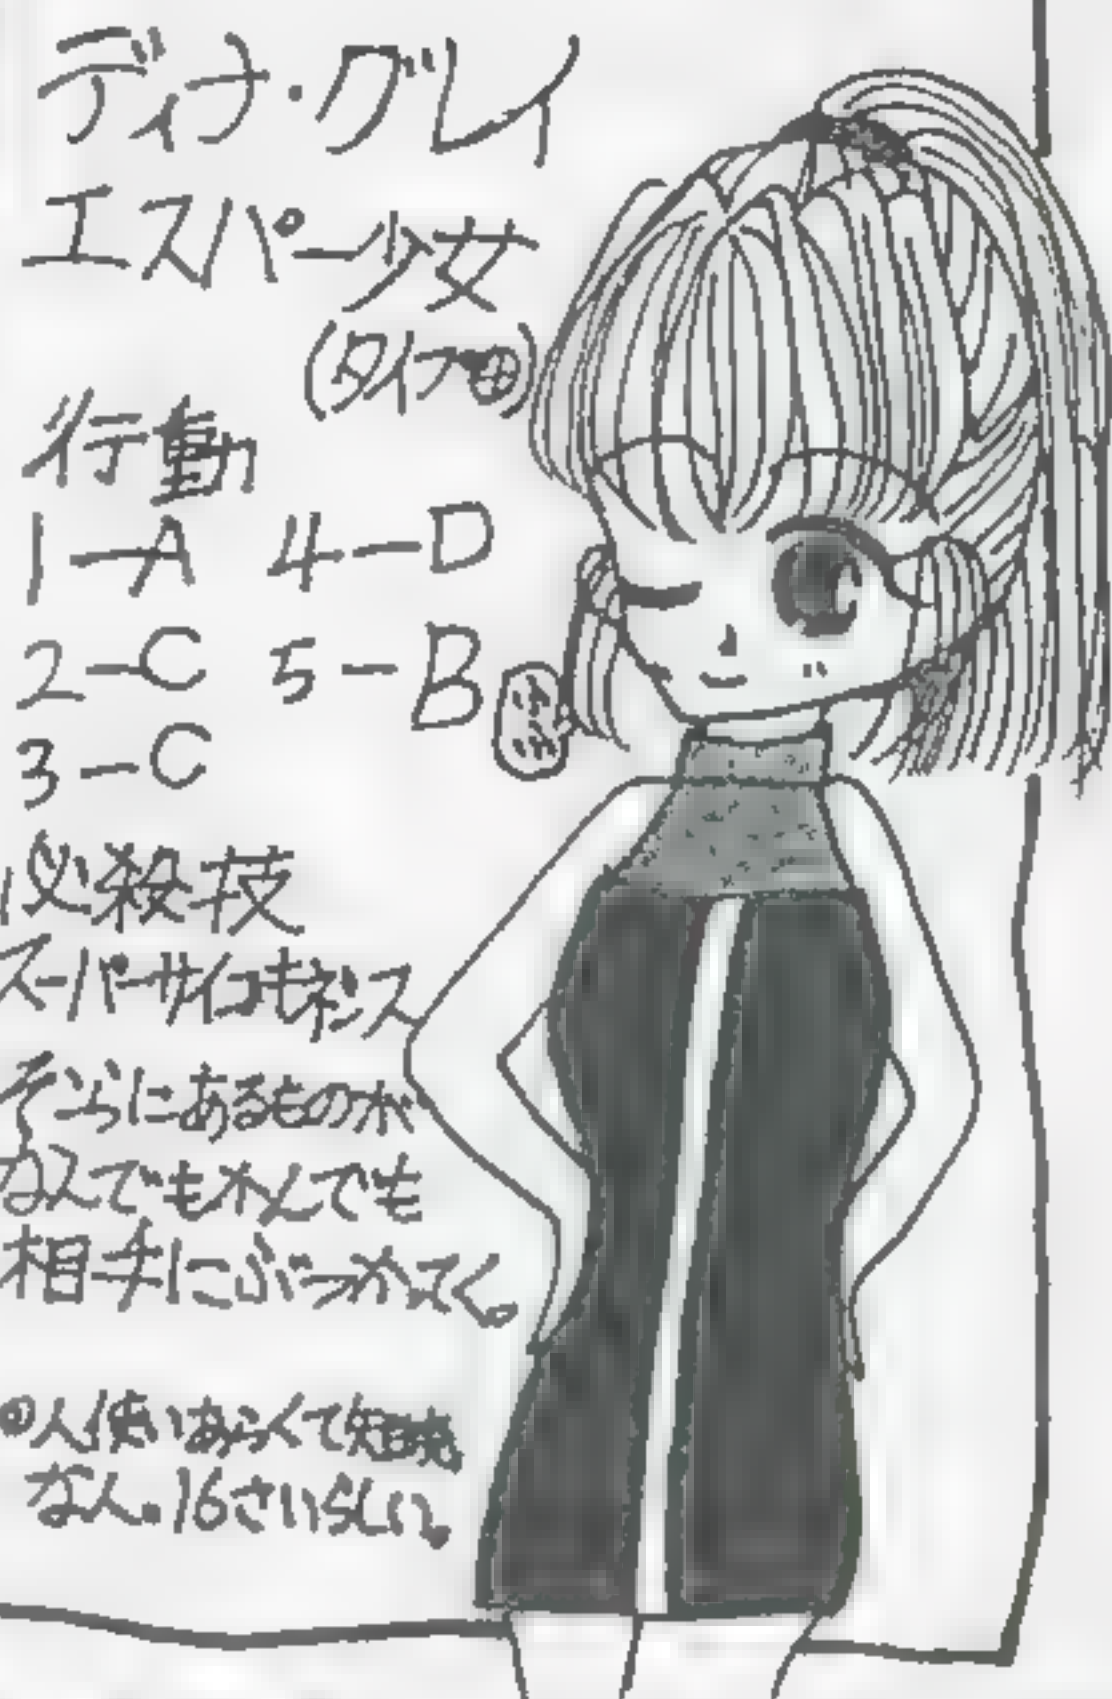 ディナ・グレイ
エスパー少女
(タイプ㊉)
行動
1-A 4-D
2-C 5-B
3-C
必殺技
スーパーサイコキネシス
そこらにあるものが
なんでもかんでも
相手にぶつかってく。
人使いあらくて短気
なん。16さいらしい。